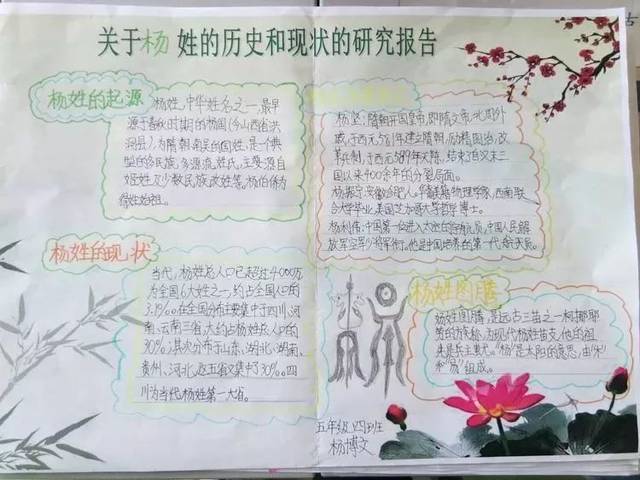 关于杨姓的历史和现状的研究报告
杨姓的起源
杨姓,中华姓名之一,最早
源于春秋时期的杨国(今山西省洪
洞县),为隋朝南吴的国姓,是一个典
型的多民族、多源流姓氏,主要源自
姬姓及少数民族改姓等,杨伯侨为
得姓始祖。
杨坚:隋朝开国皇帝,即隋文帝,北周外
戚,于西元581年建立隋朝,励精图治,改
革兵制,于西元589年灭陈,结束了自汉末三
国以来400余年的分裂局面。
杨振宁,安徽合肥人。华裔美籍物理学家,西南联
合大学毕业,美国芝加哥大学哲学博士。
杨利伟:中国第一位进入太空的宇航员,中国人民解
放军空军少将军衔,他是中国培养的第一代航天员。
杨姓的现状
当代,杨姓总人口已超过4000万
为全国6大姓之一,约占全国人口的
3.1%。在全国分布主要集中于四川、河
南、云南三省,大约占杨姓总人口的
30%;其次分布于山东、湖北、湖南、
贵州、河北,这五省又集中了30%。四
川为当代杨姓第一大省。
杨姓图腾
杨姓图腾,是远古三苗之一
的族称,为现代杨姓苗支,他的祖
先是兵主蚩尤。“杨”是太阳的意思,由“木”
和“易”组成。
五年级四班
杨博文